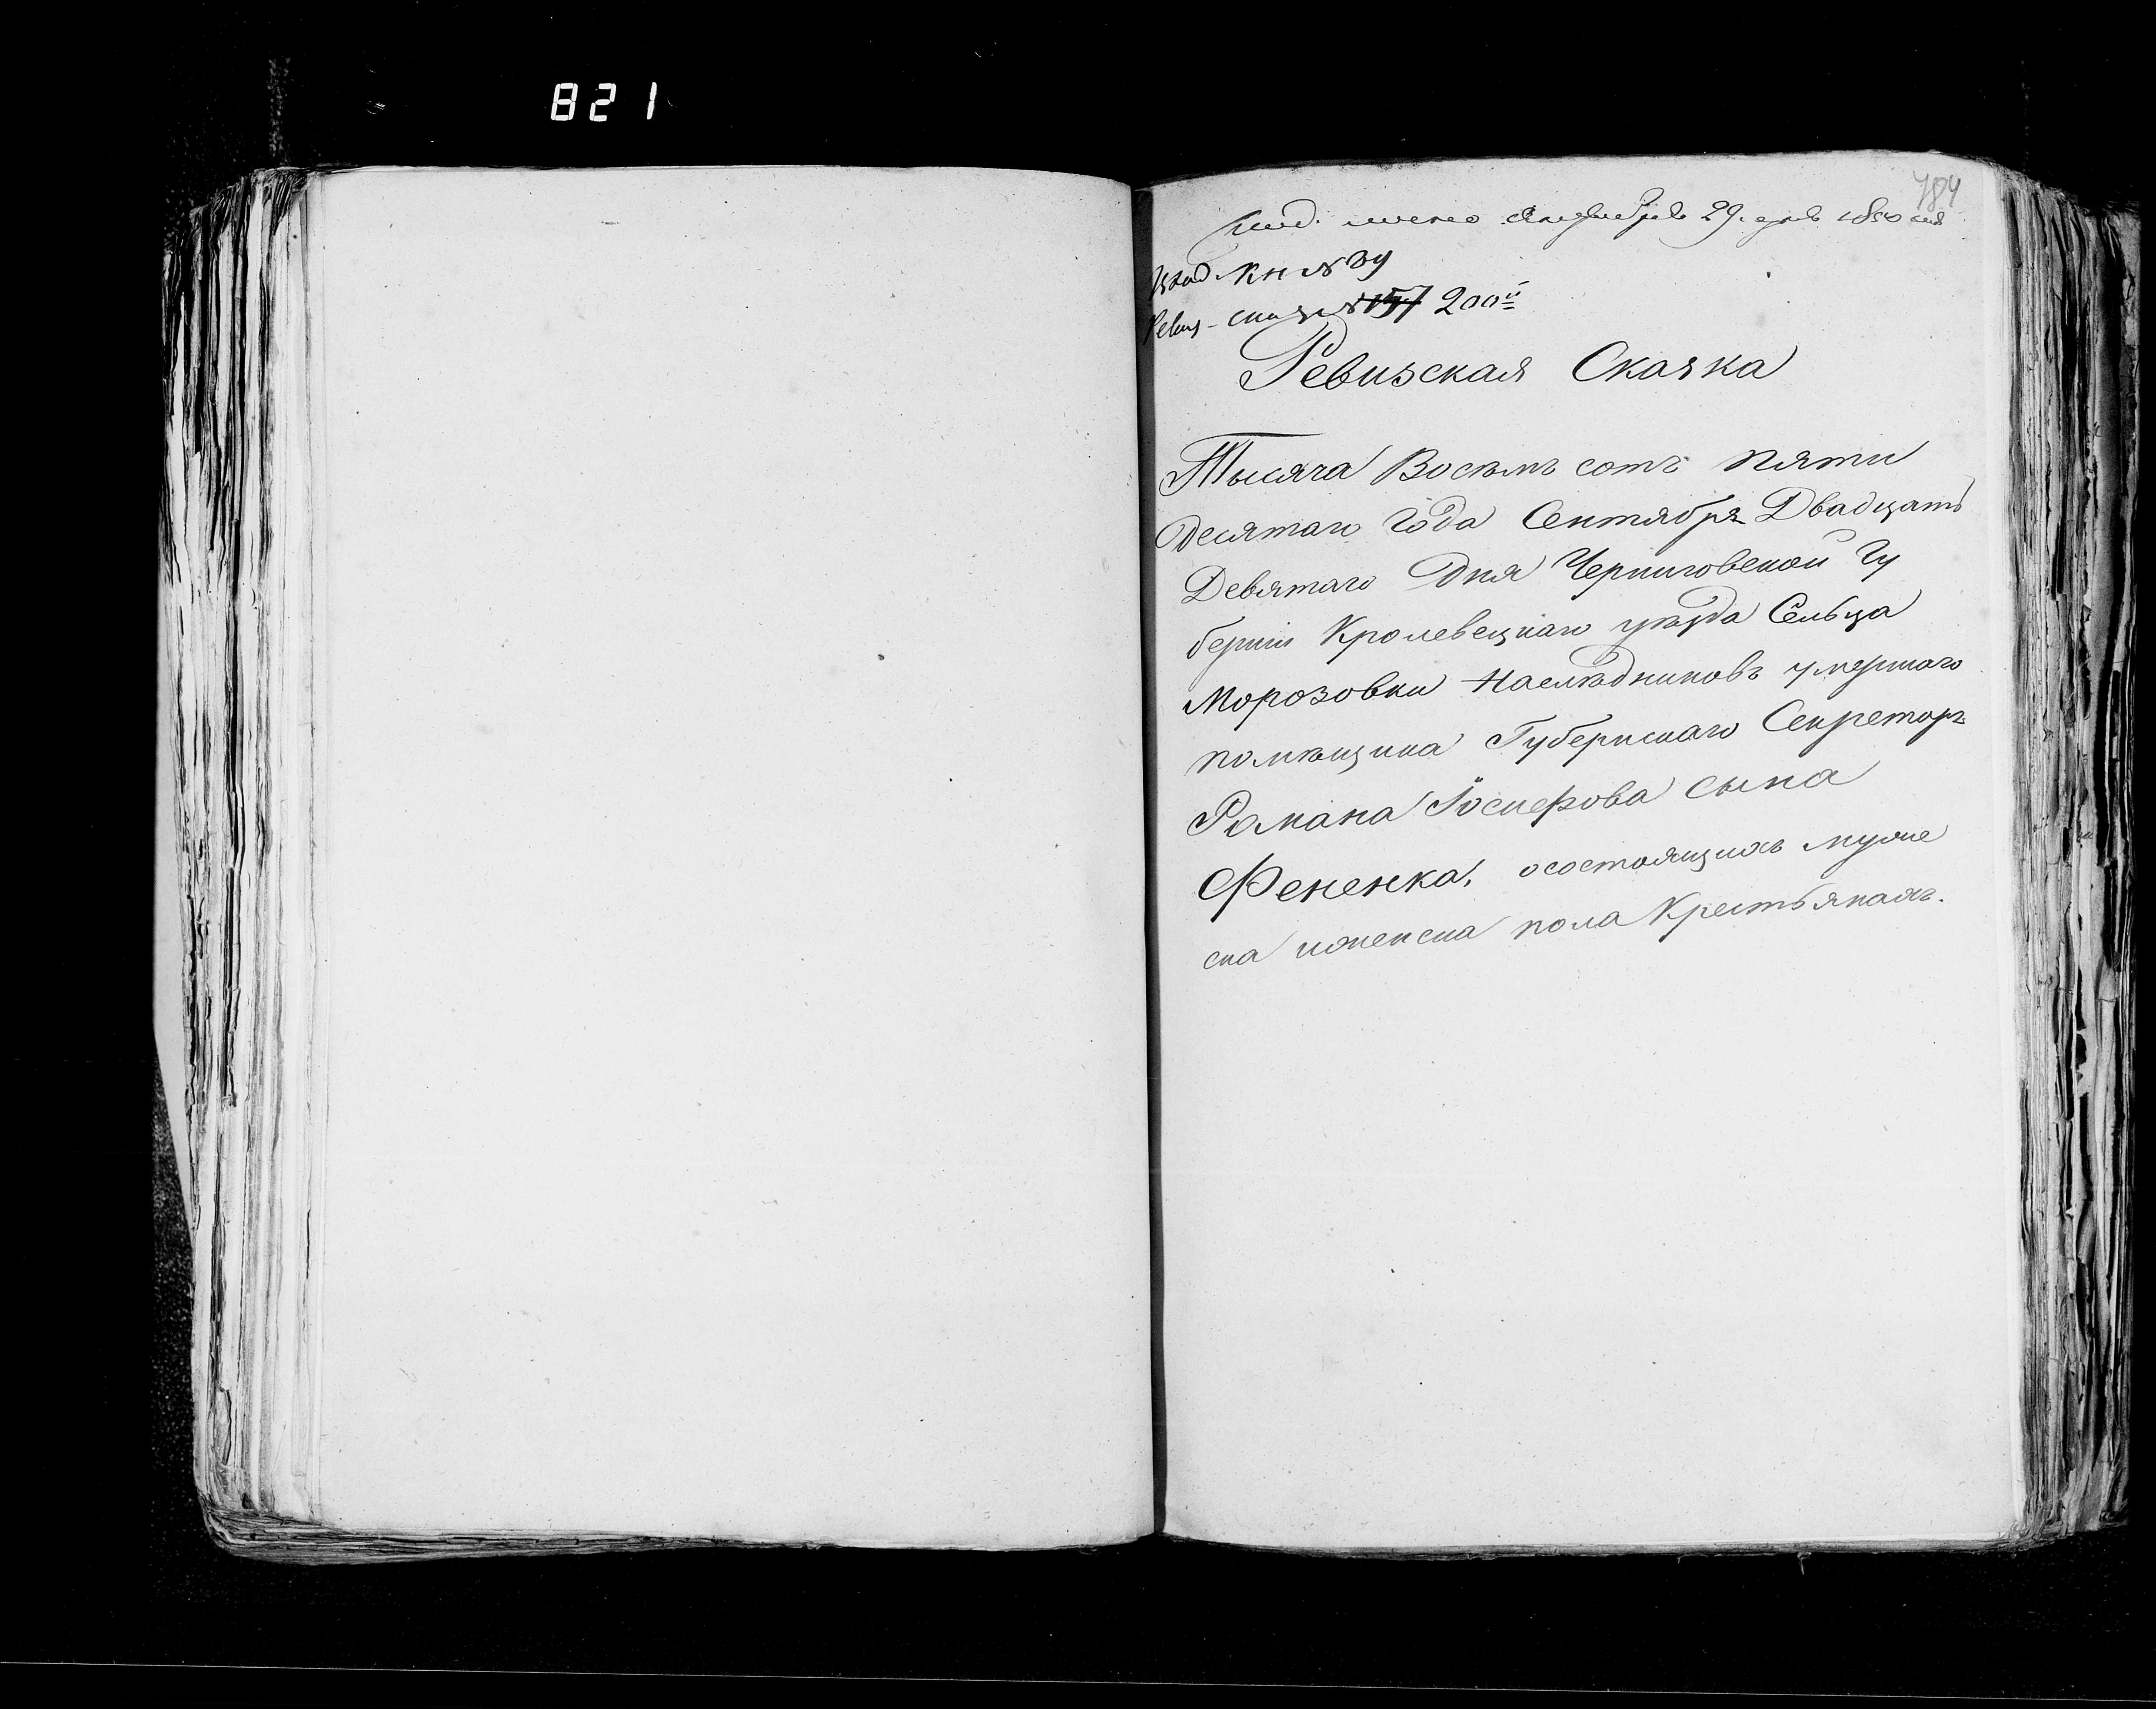 821
784
Сентября 29 дня 1850 года
Вход Кн № 39
Ревиз - сказ № 157 200й
Ревизская Сказка
Тысяча Восемъ сотъ Пяти
десятаго Года Сентября Двадцать
Девятаго Дня Черниговской Гу
берніи Кролевецкаго уѣзда Сельца
Морозовки Наслѣдниковъ умершаго
помѣщика Губернскаго Секретаря
Романа Іосифова Сына
Фененка, осостоящихъ муже
ска иженска пола Крестьянахъ.